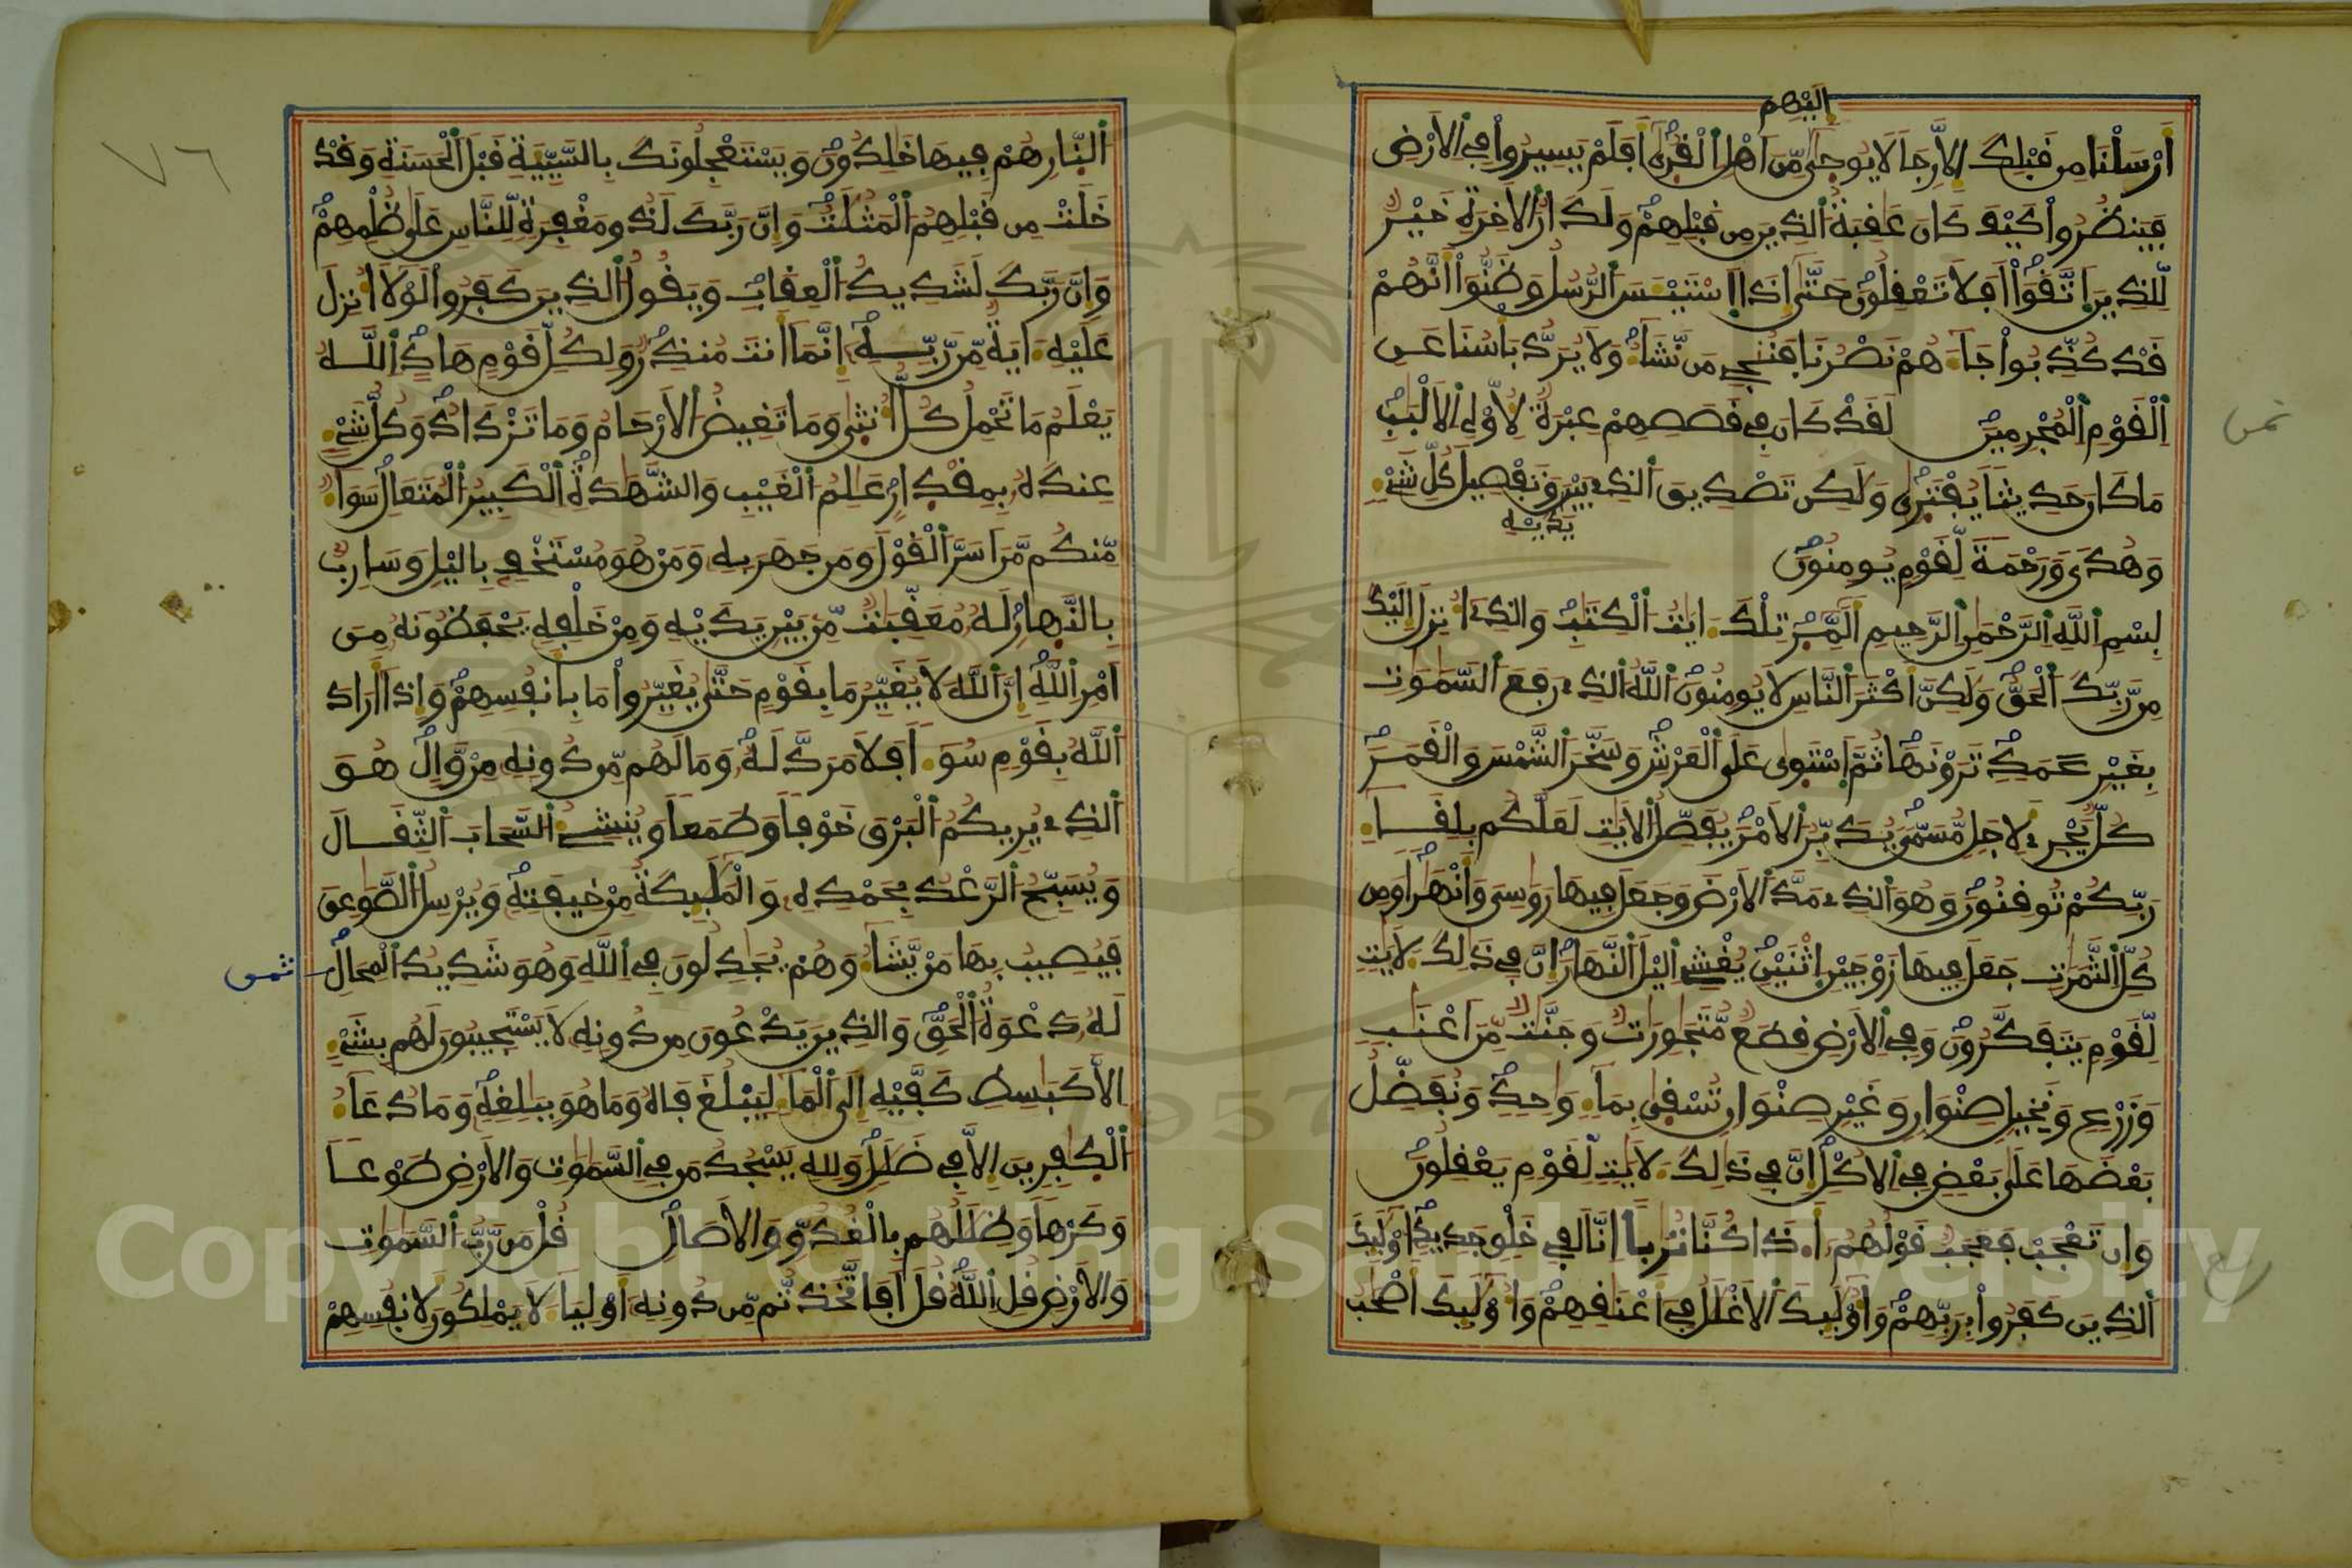 إليهم
أَرْسَلْنَا مِن قَبْلِكَ إِلاَّ رِجَالاً يُوحَىٰ إِلَيْهِم مِّنَ اَهْلِ اِ۬لْقُر۪ىٰٓ أَفَلَمْ يَسِيرُواْ فِے اِ۬لاَرْضِ
فَيَنظُرُواْ كَيْفَ كَانَ عَٰقِبَةُ اُ۬لذِينَ مِن قَبْلِهِمْ وَلَدَارُ اُ۬لاَخِرَةِ خَيْرٞ
لِّلذِينَ اَ۪تَّقَوَاْ اَفَلاَ تَعْقِلُونَ حَتَّىٰٓ إِذَا اَ۪سْتَيْـَٔسَ اَ۬لرُّسُلُ وَظَنُّوٓاْ أَنَّهُمْ
قَدْ كُذِّبُواْ جَآءَهُمْ نَصْرُنَا فَنُنجِے مَن نَّشَآءُ وَلاَ يُرَدُّ بَأْسُنَا عَنِ
اِ۬لْقَوْمِ اِ۬لْمُجْرِمِينَ لَقَدْ كَانَ فِے قَصَصِهِمْ عِبْرَةٞ لِّأُوْلِے اِ۬لاَلْبَٰبِ
مَا كَانَ حَدِيثاٗ يُفْتَر۪ىٰ وَلَٰكِن تَصْدِيقَ اَ۬لذِے بَيْنَ وَتَفْصِيلَ كُلِّ شَےْءٖ
يَدَيْهِ
وَهُدىٗ وَرَحْمَةٗ لِّقَوْمٖ يُومِنُونَ
بِسْمِ اِ۬للَّهِ اِ۬لرَّحْمَٰنِ اِ۬لرَّحِيمِ أَلَٓمِّٓر۪ۖ تِلْكَ ءَايَٰتُ اُ۬لْكِتَٰبِ وَالذِےٓ أُنزِلَ إِلَيْكَ
مِن رَّبِّكَ اَ۬لْحَقُّ وَلَٰكِنَّ أَكْثَرَ اَ۬لنَّاسِ لاَ يُومِنُونَ اَ۬للَّهُ اُ۬لذِے رَفَعَ اَ۬لسَّمَٰوَٰتِ
بِغَيْرِ عَمَدٖ تَرَوْنَهَا ثُمَّ اَ۪سْتَوَىٰ عَلَى اَ۬لْعَرْشِ وَسَخَّرَ اَ۬لشَّمْسَ وَالْقَمَرَ
كُلّٞ يَجْرِے لِأَجَلٖ مُّسَمّىٗ يُدَبِّرُ اُ۬لاَمْرَ يُفَصِّلُ اُ۬لاَيَٰتِ لَعَلَّكُم بِلِقَآءِ
رَبِّكُمْ تُوقِنُونَ وَهُوَ اَ۬لذِے مَدَّ اَ۬لاَرْضَ وَجَعَلَ فِيهَا رَوَٰسِيَ وَأَنْهَٰراٗ وَمِن
كُلِّ اِ۬لثَّمَرَٰتِ جَعَلَ فِيهَا زَوْجَيْنِ اِ۪ثْنَيْنِ يُغْشِے اِ۬ليْلَ اَ۬لنَّهَارَ إِنَّ فِے ذَٰلِكَ لَأٓيَٰتٖ
لِّقَوْمٖ يَتَفَكَّرُونَ وَفِے اِ۬لاَرْضِ قِطَعٞ مُّتَجَٰوِرَٰتٞ وَجَنَّٰتٞ مِّنَ اَعْنَٰبٖ
وَزَرْعٖ وَنَخِيلٖ صِنْوَانٖ وَغَيْرِ صِنْوَانٖ تُسْقَىٰ بِمَآءٖ وَٰحِدٖ وَنُفَضِّلُ
بَعْضَهَا عَلَىٰ بَعْضٖ فِے اِ۬لاُكْلِ إِنَّ فِے ذَٰلِكَ لَأٓيَٰتٖ لِّقَوْمٖ يَعْقِلُونَ
وَإِن تَعْجَبْ فَعَجَبٞ قَوْلُهُمُۥٓ أَ.ذَا كُنَّا تُرَٰباً اِنَّا لَفِے خَلْقٖ جَدِيدٍ اُوْلَٰٓئِكَ
اَ۬لذِينَ كَفَرُواْ بِرَبِّهِمْ وَأُوْلَٰٓئِكَ اَ۬لاَغْلَٰلُ فِےٓ أَعْنَٰقِهِمْ وَأُوْلَٰٓئِكَ أَصْحَٰبُ
ثمن
ربع
٧٦
اُ۬لنّ۪ارِ هُمْ فِيهَا خَٰلِدُونَ وَيَسْتَعْجِلُونَكَ بِالسَّيِّئَةِ قَبْلَ اَ۬لْحَسَنَةِ وَقَدْ
خَلَتْ مِن قَبْلِهِمُ اُ۬لْمَثُلَٰتُ وَإِنَّ رَبَّكَ لَذُو مَغْفِرَةٖ لِّلنَّاسِ عَلَىٰ ظُلْمِهِمْ
وَإِنَّ رَبَّكَ لَشَدِيدُ اُ۬لْعِقَابِ وَيَقُولُ اُ۬لذِينَ كَفَرُواْ لَوْلَآ أُنزِلَ
عَلَيْهِ ءَايَةٞ مِّن رَّبِّهِۦٓ إِنَّمَآ أَنتَ مُنذِرٞ وَلِكُلِّ قَوْمٍ هَادٍ اَ۬للَّهُ
يَعْلَمُ مَا تَحْمِلُ كُلُّ أُنث۪ىٰ وَمَا تَغِيضُ اُ۬لاَرْحَامُ وَمَا تَزْدَادُ وَكُلُّ شَےْءٍ
عِندَهُۥ بِمِقْدَارٍ عَٰلِمُ اُ۬لْغَيْبِ وَالشَّهَٰدَةِ اِ۬لْكَبِيرُ اُ۬لْمُتَعَالِ سَوَآءٞ
مِّنكُم مَّنَ اَسَرَّ اَ۬لْقَوْلَ وَمَن جَهَرَ بِهِۦ وَمَنْ هُوَ مُسْتَخْفِۢ بِاليْلِ وَسَارِبُۢ
بِالنَّه۪ارِ لَهُۥ مُعَقِّبَٰتٞ مِّنۢ بَيْنِ يَدَيْهِ وَمِنْ خَلْفِهِۦ يَحْفَظُونَهُۥ مِنَ
اَمْرِ اِ۬للَّهِ إِنَّ اَ۬للَّهَ لاَ يُغَيِّرُ مَا بِقَوْمٍ حَتَّىٰ يُغَيِّرُواْ مَا بِأَنفُسِهِمْ وَإِذَآ أَرَادَ
اَ۬للَّهُ بِقَوْمٖ سُوٓءاٗ فَلاَ مَرَدَّ لَهُۥ وَمَا لَهُم مِّن دُونِهِۦ مِنْ وَّالٍ هُوَ
اَ۬لذِے يُرِيكُمُ اُ۬لْبَرْقَ خَوْفاٗ وَطَمَعاٗ وَيُنشِۓُ اُ۬لسَّحَابَ اَ۬لثِّقَالَ
وَيُسَبِّحُ اُ۬لرَّعْدُ بِحَمْدِهِۦ وَالْمَلَٰٓئِكَةُ مِنْ خِيفَتِهِۦ وَيُرْسِلُ اُ۬لصَّوَٰعِقَ
فَيُصِيبُ بِهَا مَنْ يَّشَآءُ وَهُمْ يُجَٰدِلُونَ فِے اِ۬للَّهِ وَهُوَ شَدِيدُ اُ۬لْمِحَالِ
ثمن
لَهُۥ دَعْوَةُ اُ۬لْحَقِّ وَالذِينَ يَدْعُونَ مِن دُونِهِۦ لاَ يَسْتَجِيبُونَ لَهُم بِشَےْءٍ
اِلاَّ كَبَٰسِطِ كَفَّيْهِ إِلَى اَ۬لْمَآءِ لِيَبْلُغَ فَاهُ وَمَا هُوَ بِبَٰلِغِهِۦ وَمَا دُعَآءُ
اُ۬لْكٰ۪فِرِينَ إِلاَّ فِے ضَلَٰلٖ وَلِلهِ يَسْجُدُ مَن فِے اِ۬لسَّمَٰوَٰتِ وَالاَرْضِ طَوْعاٗ
وَكَرْهاٗ وَظِلَٰلُهُم بِالْغُدُوِّ وَالاَصَالِ قُلْ مَن رَّبُّ اُ۬لسَّمَٰوَٰتِ
وَالاَرْضِ قُلِ اِ۬للَّهُ قُلَ اَفَاتَّخَذتُّم مِّن دُونِهِۦٓ أَوْلِيَآءَ لاَ يَمْلِكُونَ لِأَنفُسِهِمْ
Copyright © King Saud University
1957